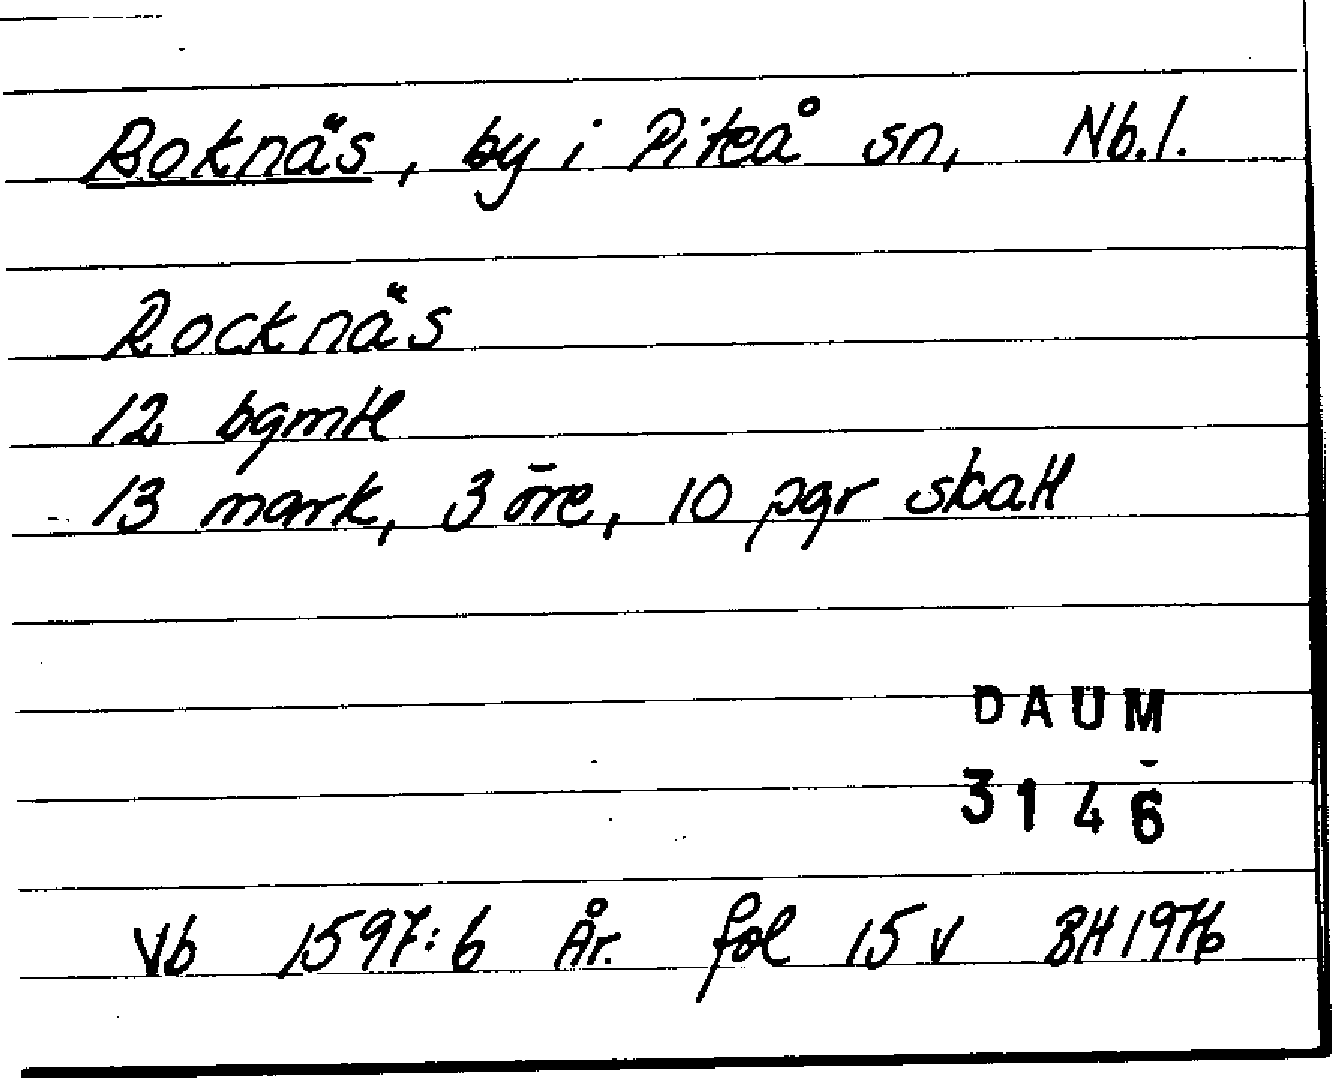 Roknäs, by i Piteå sn, Nb.l.
Rocknäs
12 bgmtl
13 mark, 3 öre, 10 pgr skatt
DAUM
3146
Vb 1597:6 År. fol 15 v BH 1976